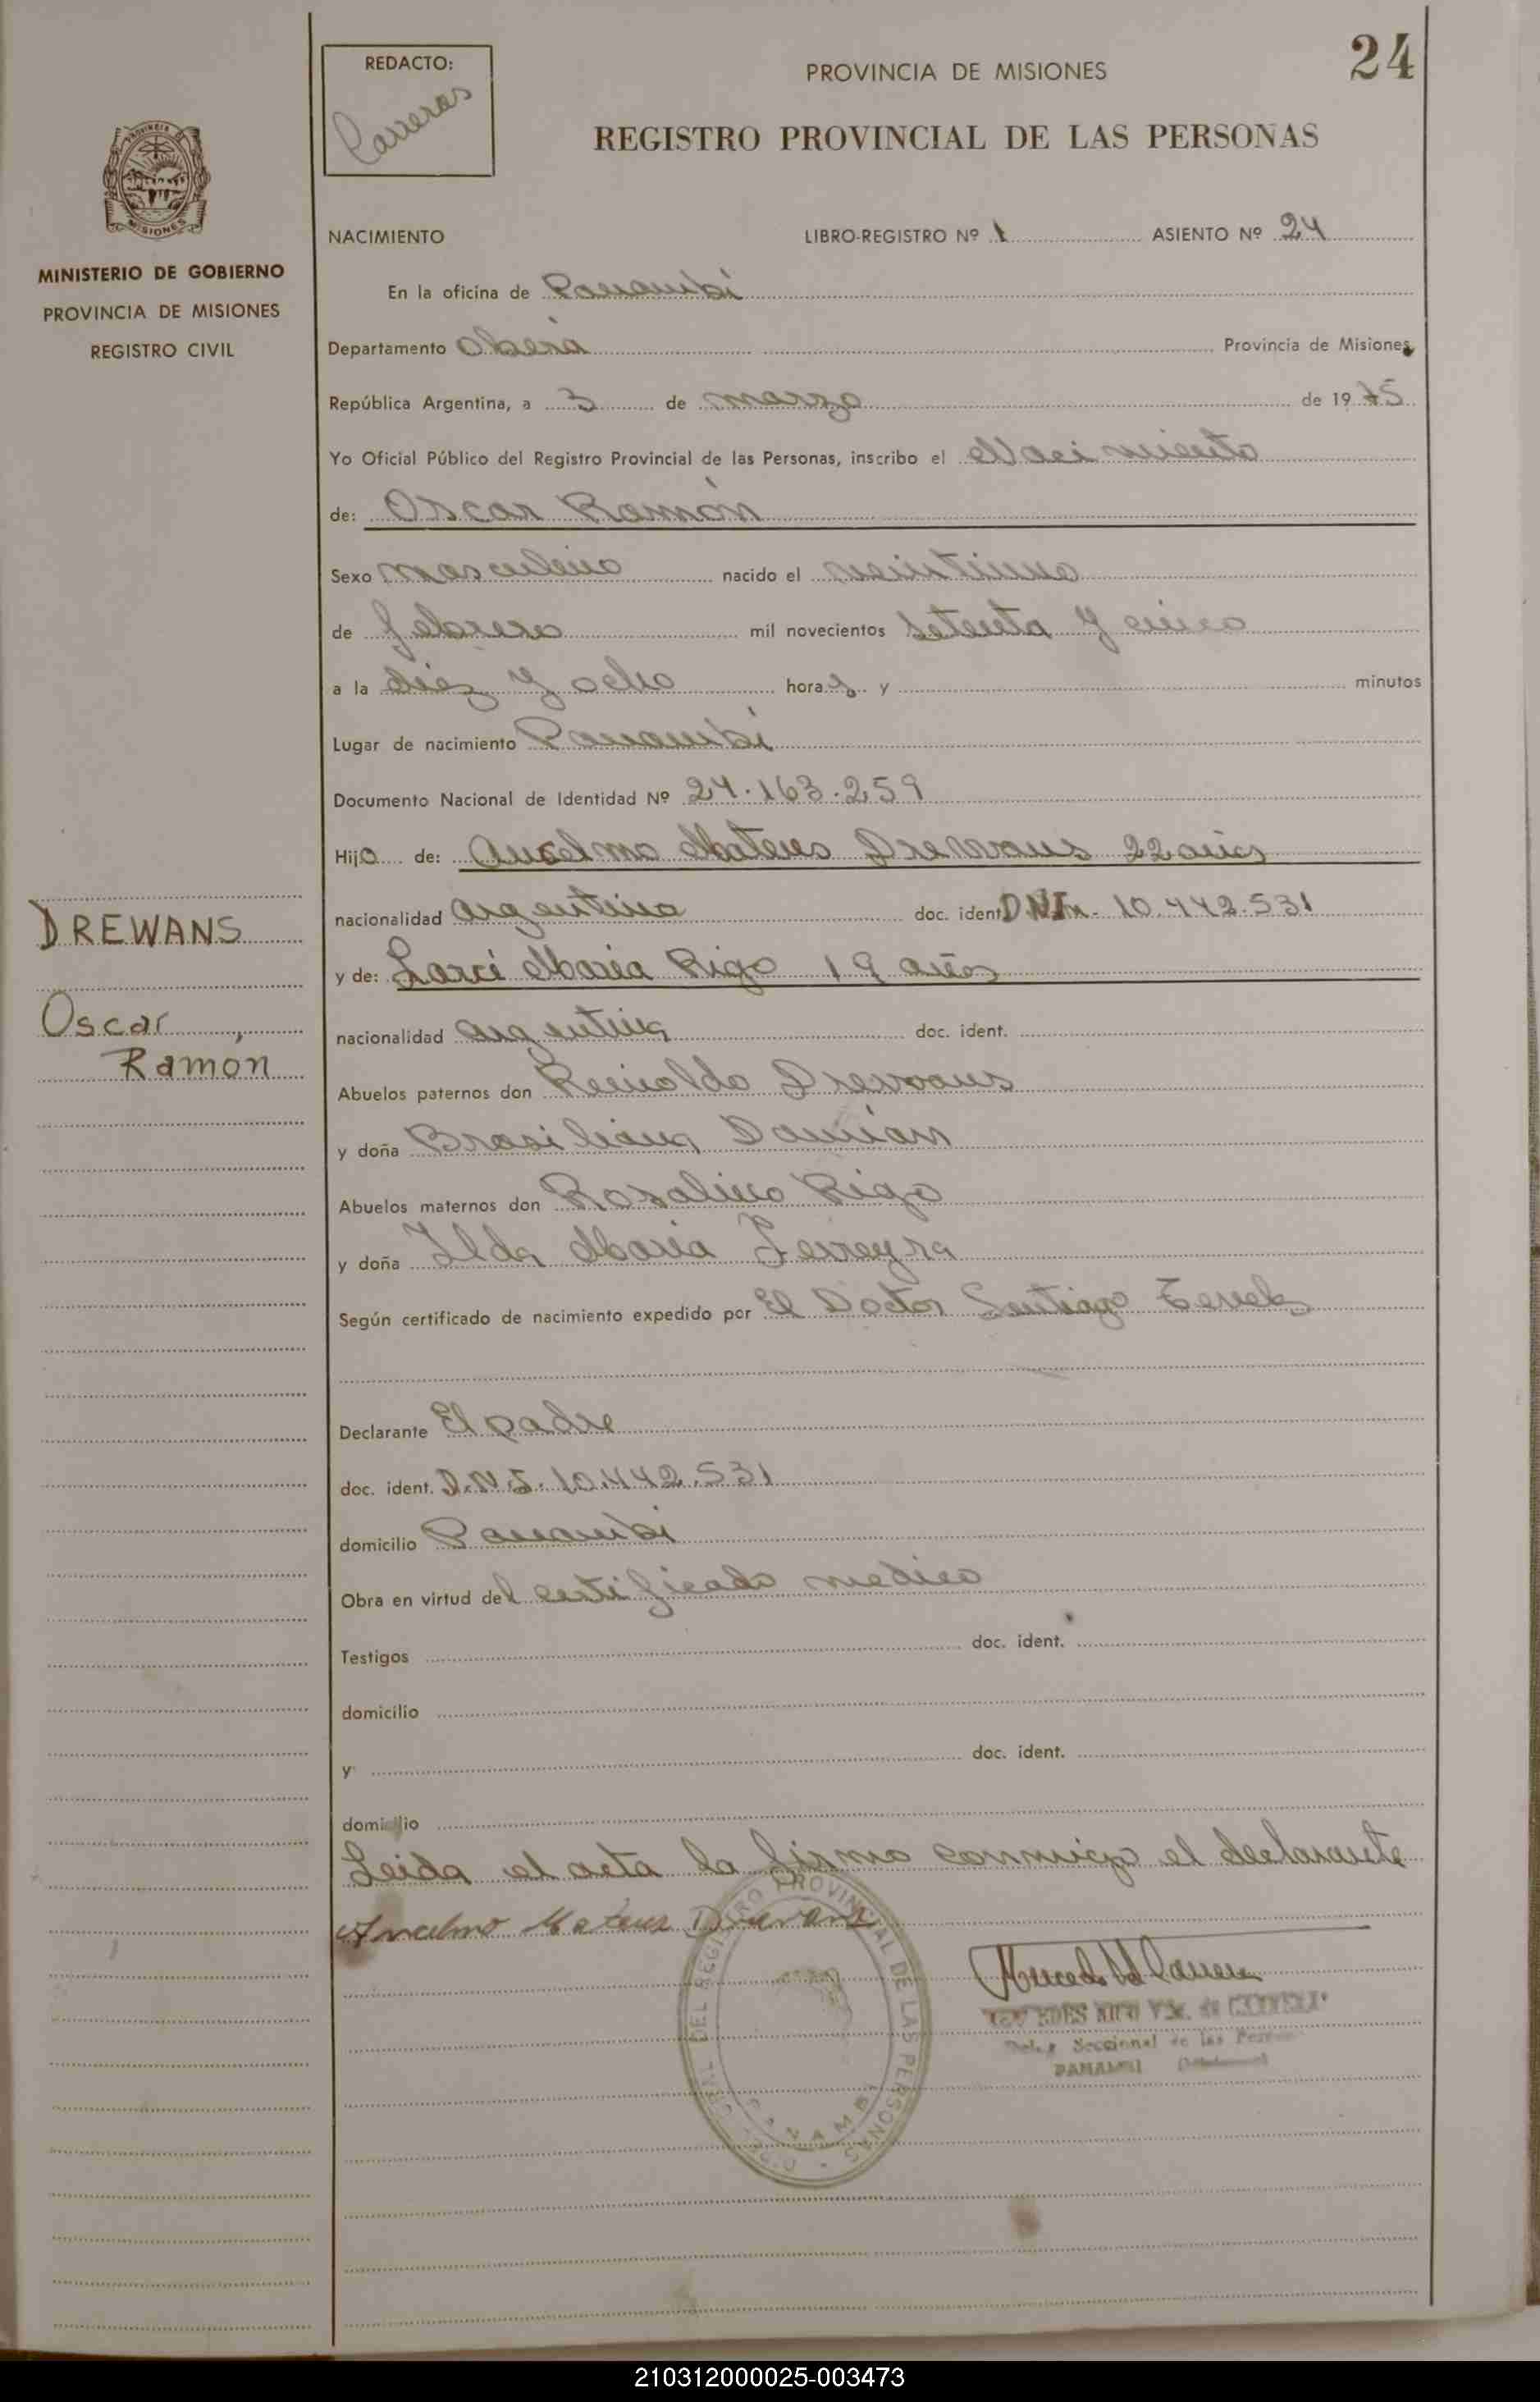 24
REDACTO:
Carreras
PROVINCIA DE MISIONES
REGISTRO PROVINCIAL DE LAS PERSONAS
PROVINCIA DE
MISIONES
MINISTERIO DE GOBIERNO
PROVINCIA DE MISIONES
REGISTRO CIVIL
NACIMIENTO LIBRO-REGISTRO Nº 1 ASIENTO Nº 24
En la oficina de Panambí
Departamento Oberá Provincia de Misiones,
República Argentina, a 3 de marzo de 1975
Yo Oficial Público del Registro Provincial de las Personas, inscribo el Nacimiento
de: Oscar Ramón
Sexo masculino nacido el veintiuno
de febrero mil novecientos setenta y cinco
a la diez y ocho horas y minutos
Lugar de nacimiento Panambí
Documento Nacional de Identidad Nº 24.163.259
Hijo de: Ancelmo Mateus Drewans 22 años
nacionalidad argentina doc. ident. DNI. 10.442.531
DREWANS
y de: Larci Maria Rigo 19 años
Oscar,
Ramón
nacionalidad argentina doc. ident.
Abuelos paternos don Reinoldo Drewans
y doña Brasiliana Damian
Abuelos maternos don Rosalino Rigo
y doña Ilda Maria Ferreyra
Según certificado de nacimiento expedido por El Doctor Santiago
Declarante El padre
doc. ident. D.N.I. 10.442.531
domicilio Panambí
Obra en virtud del certificado medico
Testigos doc. ident.
domicilio
y doc. ident.
domicilio
Leida el acta la firma conmigo el declarante
Ancelmo Mateus Drewans
DEL REGISTRO PROVINCIAL DE LAS PERSONAS
PANAMBI
de CARRERA
Seccional de las
PANAMBI
210312000025-003473